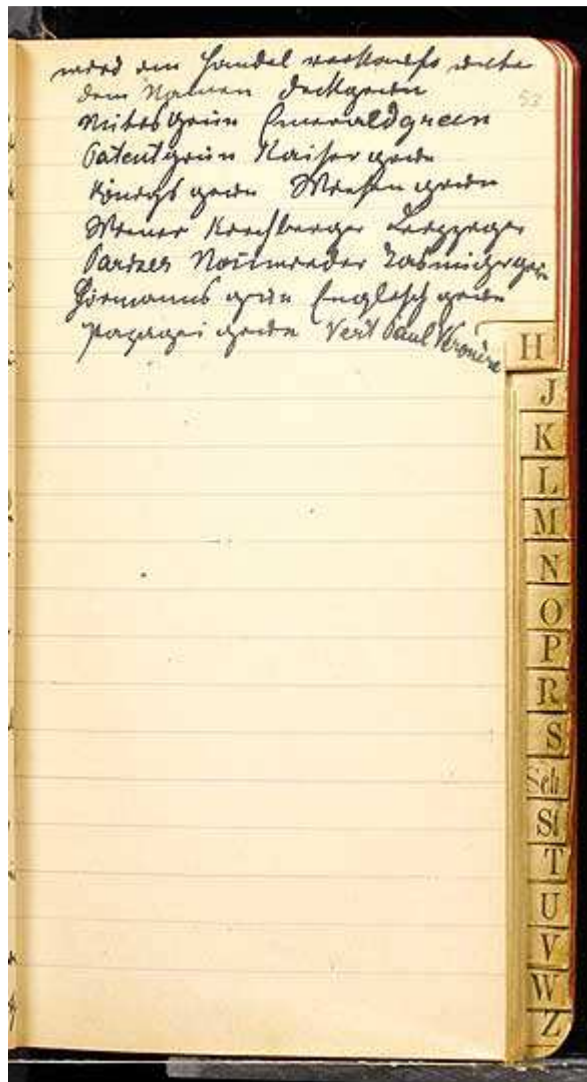 wird im Handel verkauft unter
dem Namen Deckgrün
53
Mitisgrün Emeraldgreen
Patentgrün Kaisergrün
Königsgrün Wiesengrün
Wiener Kirchberger Leipziger
Pariser Neuwieder
grün Englischgrün
Papageigrün Vert Paul Veronèse
H
J
K
L
M
N
O
P
R
S
Sch
St
T
U
V
W
Z